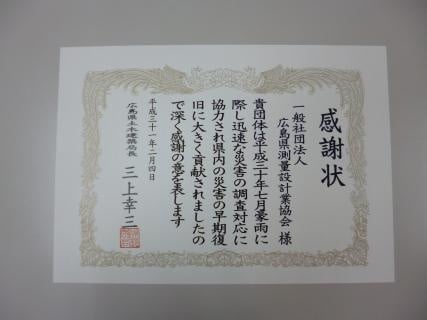 感謝状
一般社団法人
広島県測量設計業協会 様
貴団体は平成三十年七月豪雨に
際し迅速な災害の調査対応に
協力され県内の災害の早期復
旧に大きく貢献されましたの
で深く感謝の意を表します
平成三十一年二月四日
広島県土木建築局長 三上幸三